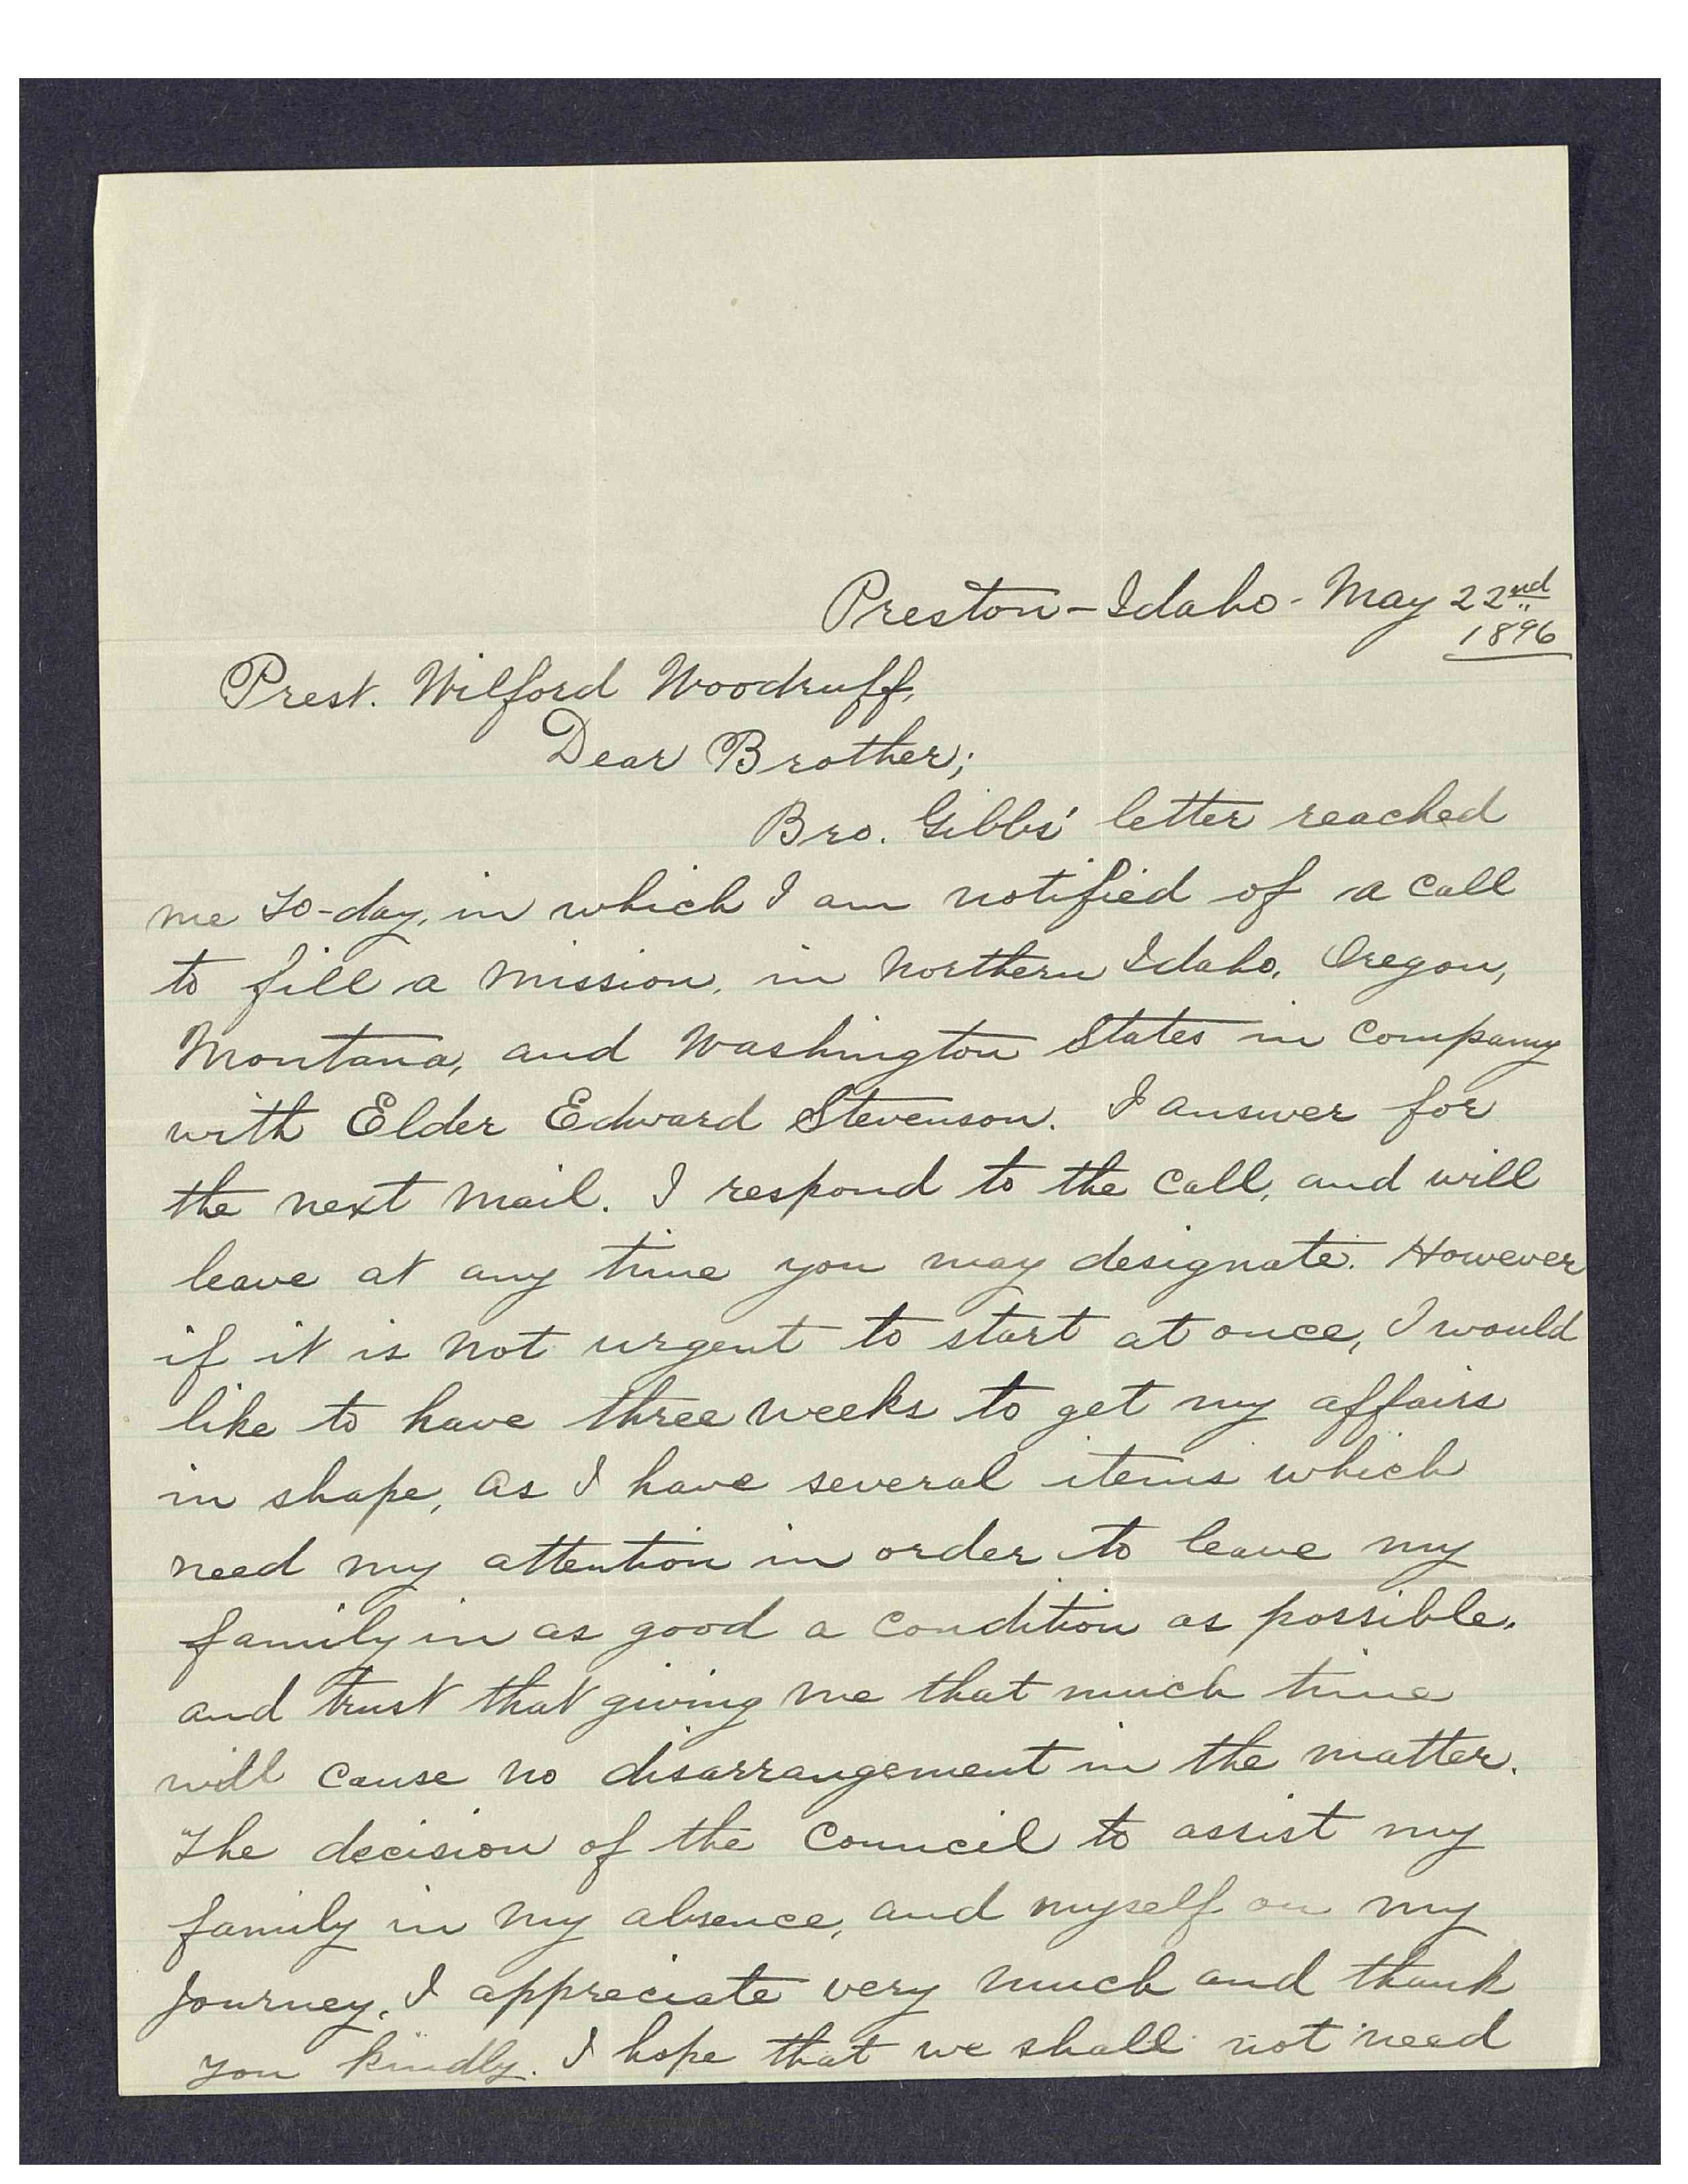 Preston - Idaho - May 22nd
1896
Prest. Wilford Woodruff,
Dear Brother;
Bro. Gibbs' letter reached
me to-day, in which I am notified of a call
to fill a mission, in Northern Idaho, Oregon,
Montana, and Washington States in company
with Elder Edward Stevenson. I answer for
the next mail. I respond to the call, and will
leave at any time you may designate. However
if it is not urgent to start at once, I would
like to have three weeks to get my affairs
in shape, as I have several items which
need my attention in order to leave my
family in as good a condition as possible.
and trust that giving me that much time
will cause no disarrangement in the matter.
The decision of the Council to assist my
family in my absence, and myself on my
journey, I appreciate very much and thank
you kindly. I hope that we shall not need